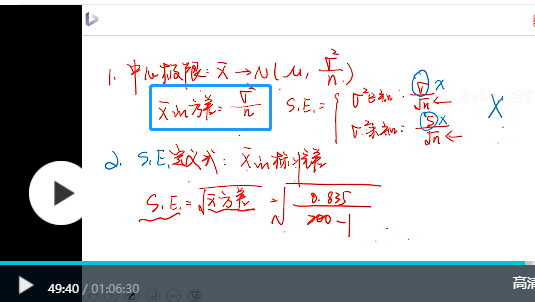 1. 中心极限: x̄ → N(μ, σ²/n)
x̄的方差= σ²/n S.E.= { σ²已知: σ/√n ← x
σ²未知: s/√n ← x X
2. S.E.定义式: x̄的标准差
S.E. = √x̄方差 = √(0.835/(200-1))
49:40 / 01:06:30 高清